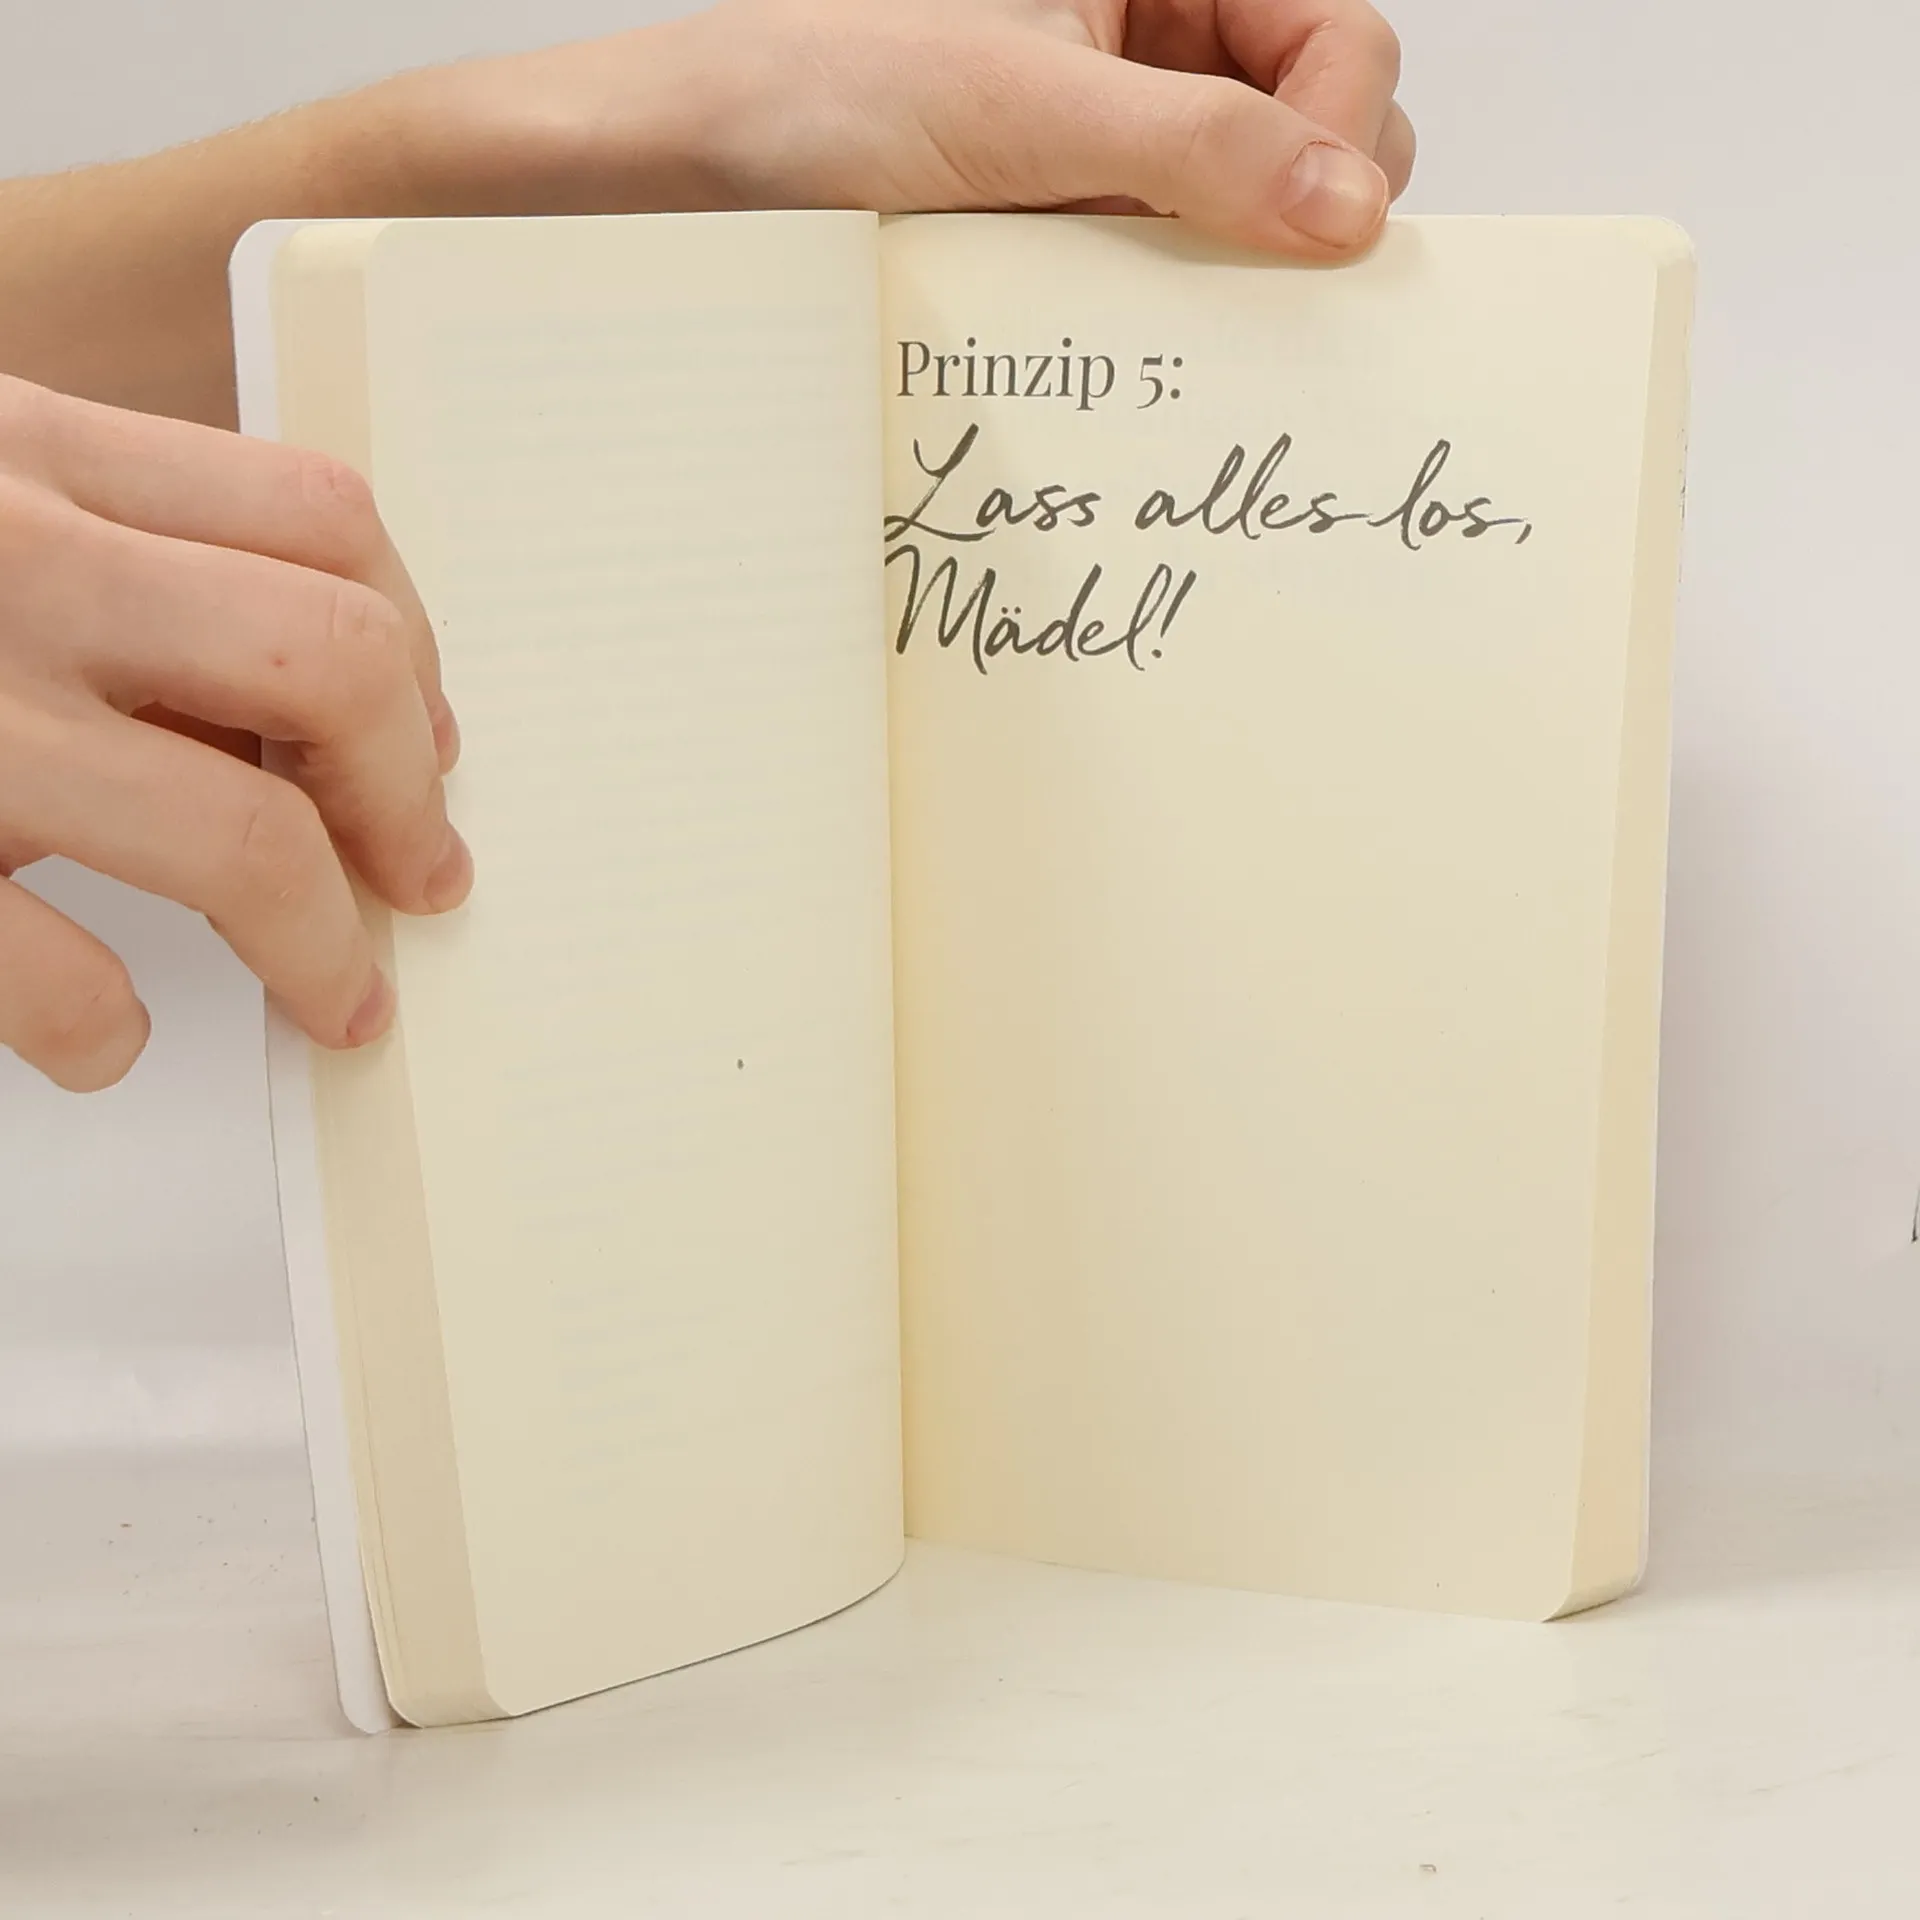 Prinzip 5:
Lass alles los,
Mädel!